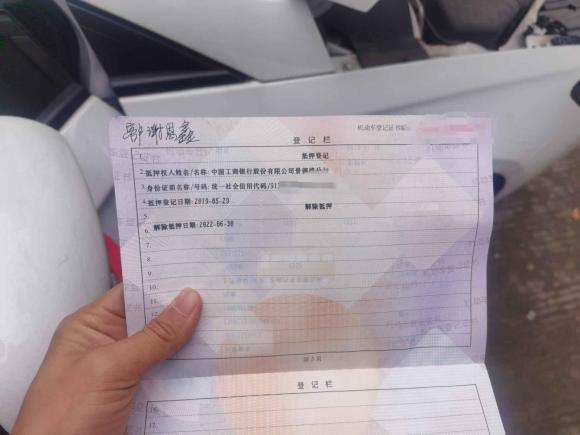 谢恩鑫
登记栏 机动车登记证书编号:
1. 抵押登记
2. 抵押权人姓名/名称:中国工商银行股份有限公司
3. 身份证明名称/号码:统一社会信用代码/91
4. 抵押登记日期:2019-05-29
5. 解除抵押
6. 解除抵押日期:2022-06-30
7.
8.
9.
10.
11.
12.
第3页
登记栏
16.
17.